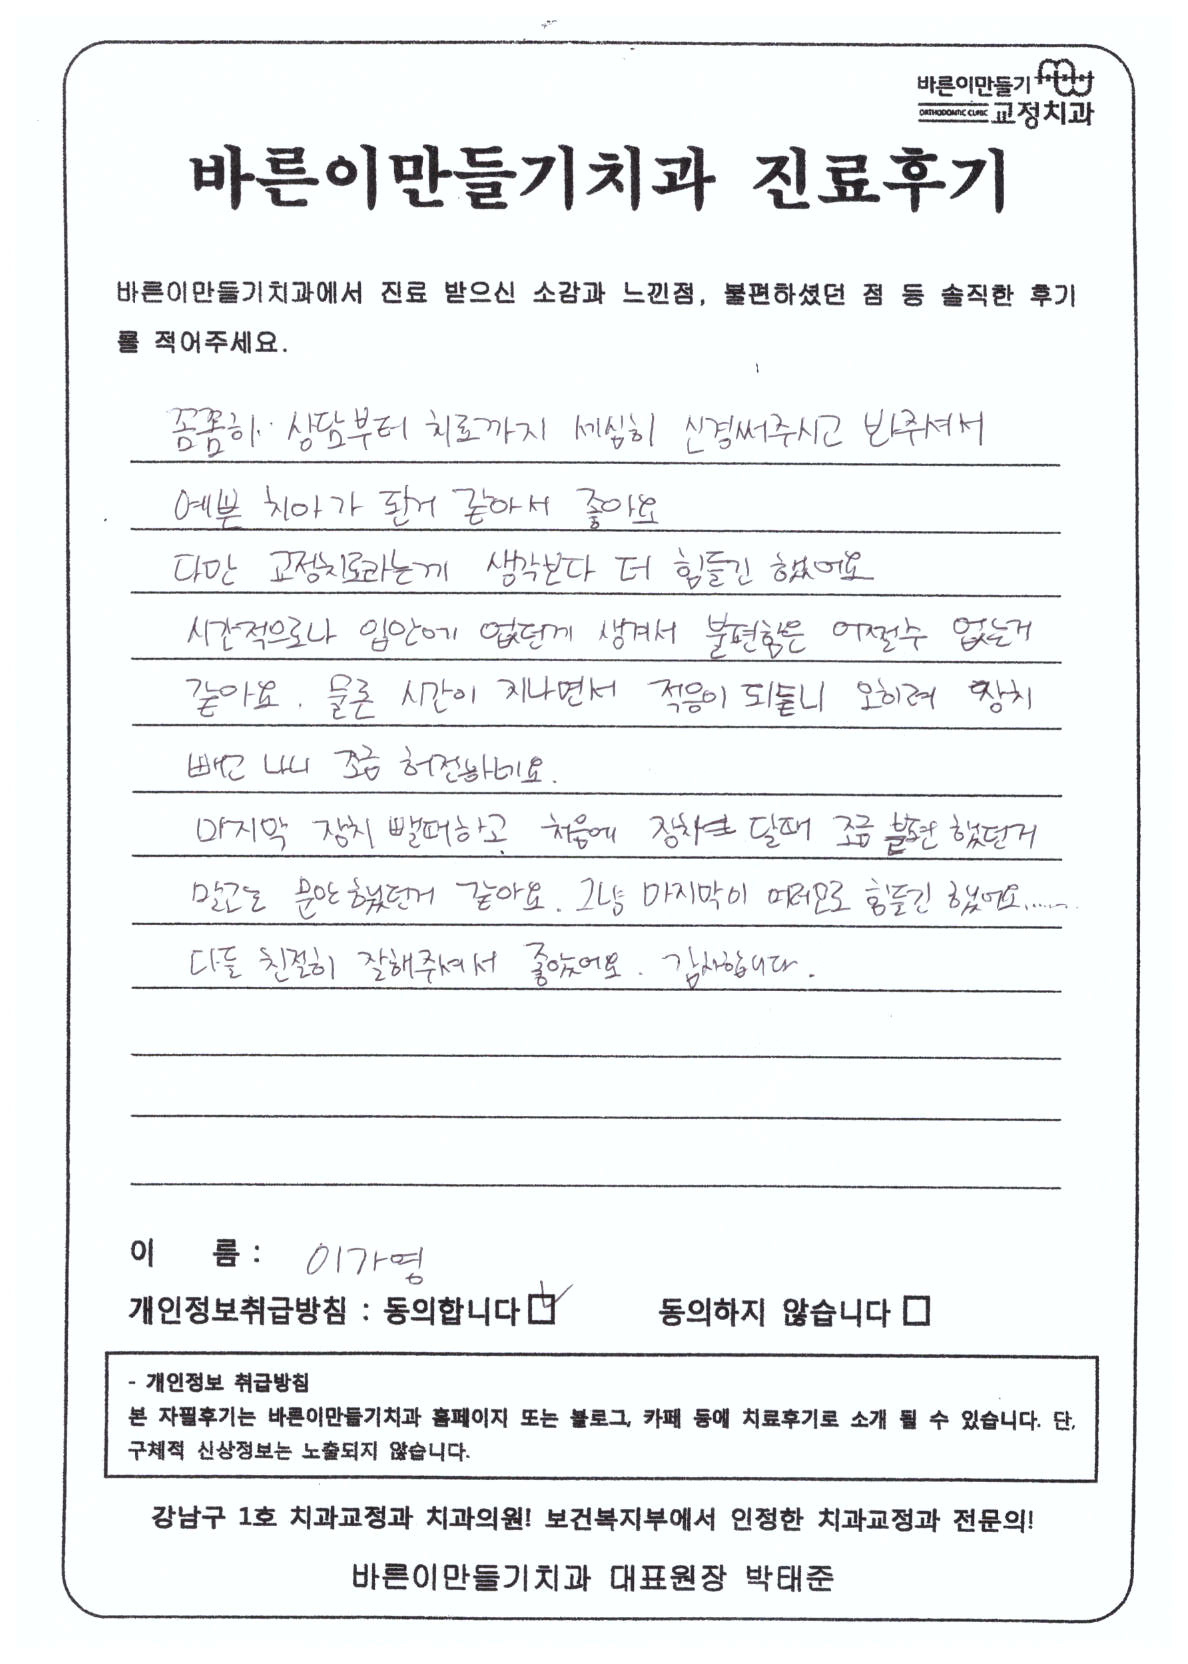 바른이만들기
ORTHODONTIC CLINIC 교정치과
바른이만들기치과 진료후기
바른이만들기치과에서 진료 받으신 소감과 느낀점, 불편하셨던 점 등 솔직한 후기
를 적어주세요.
꼼꼼히.. 상담부터 치료까지 세심히 신경써주시고 봐주셔서
예쁜 치아가 된거 같아서 좋아요
다만 교정치료라는게 생각보다 더 힘들긴 했어요
시간적으로나 입안에 없던게 생겨서 불편함은 어쩔수 없는거
같아요. 물론 시간이 지나면서 적응이 되둩니 오히려 장치
빼고 나니 조금 허전하네요.
마지막 장치 뺄때하고 처음에 장치 달때 조금 불편 했던거
말고는 무난했던거 같아요. 그냥 마지막이 여러모로 힘들긴 했어요......
다들 친절히 잘해주셔서 좋았어요. 감사합니다.
이 름 : 이가영
개인정보취급방침 : 동의합니다 동의하지 않습니다
- 개인정보 취급방침
본 자필후기는 바른이만들기치과 홈페이지 또는 블로그, 카페 등에 치료후기로 소개 될 수 있습니다. 단,
구체적 신상정보는 노출되지 않습니다.
강남구 1호 치과교정과 치과의원! 보건복지부에서 인정한 치과교정과 전문의!
바른이만들기치과 대표원장 박태준